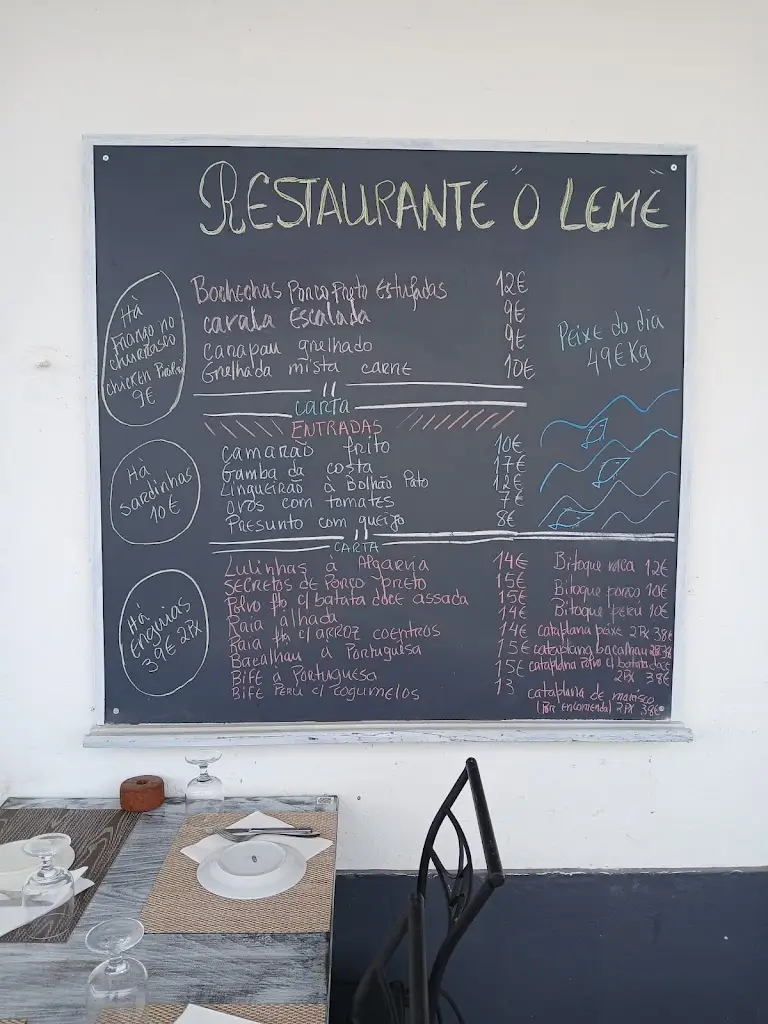 RESTAURANTE "O LEME"
Há
frango no
churrasco
chicken Piri Piri
9€
Há
sardinhas
10€
Há
Enguias
39€ 2Px
Bochechas Porco Preto Estufadas 12€
cavala Escalada 9€
carapau grelhado 9€
Grelhada mista carne 10€
Peixe do dia
49€Kg
CARTA
ENTRADAS
camarão frito 10€
Gamba da costa 17€
Lingueirão à Bolhão Pato 12€
ovos com tomates 7€
Presunto com queijo 8€
CARTA
Lulinhas à Algarvia 14€
SECRETOS DE PORCO PRETO 15€
Polvo fto c/ batata doce assada 15€
Raia alhada 14€
Raia fta c/ ARROZ COENTROS 14€
Bacalhau à Portuguesa 15€
BIFE à Portuguesa 15€
BIFE PERU c/ cogumelos 13
Bitoque vaca 12€
Bitoque porco 10€
Bitoque perú 10€
cataplana peixe 2Px 38€
cataplana bacalhau
cataplana Polvo c/ batata
2Px 38€
cataplana de marisco
(Por encomenda) 2Px 38€